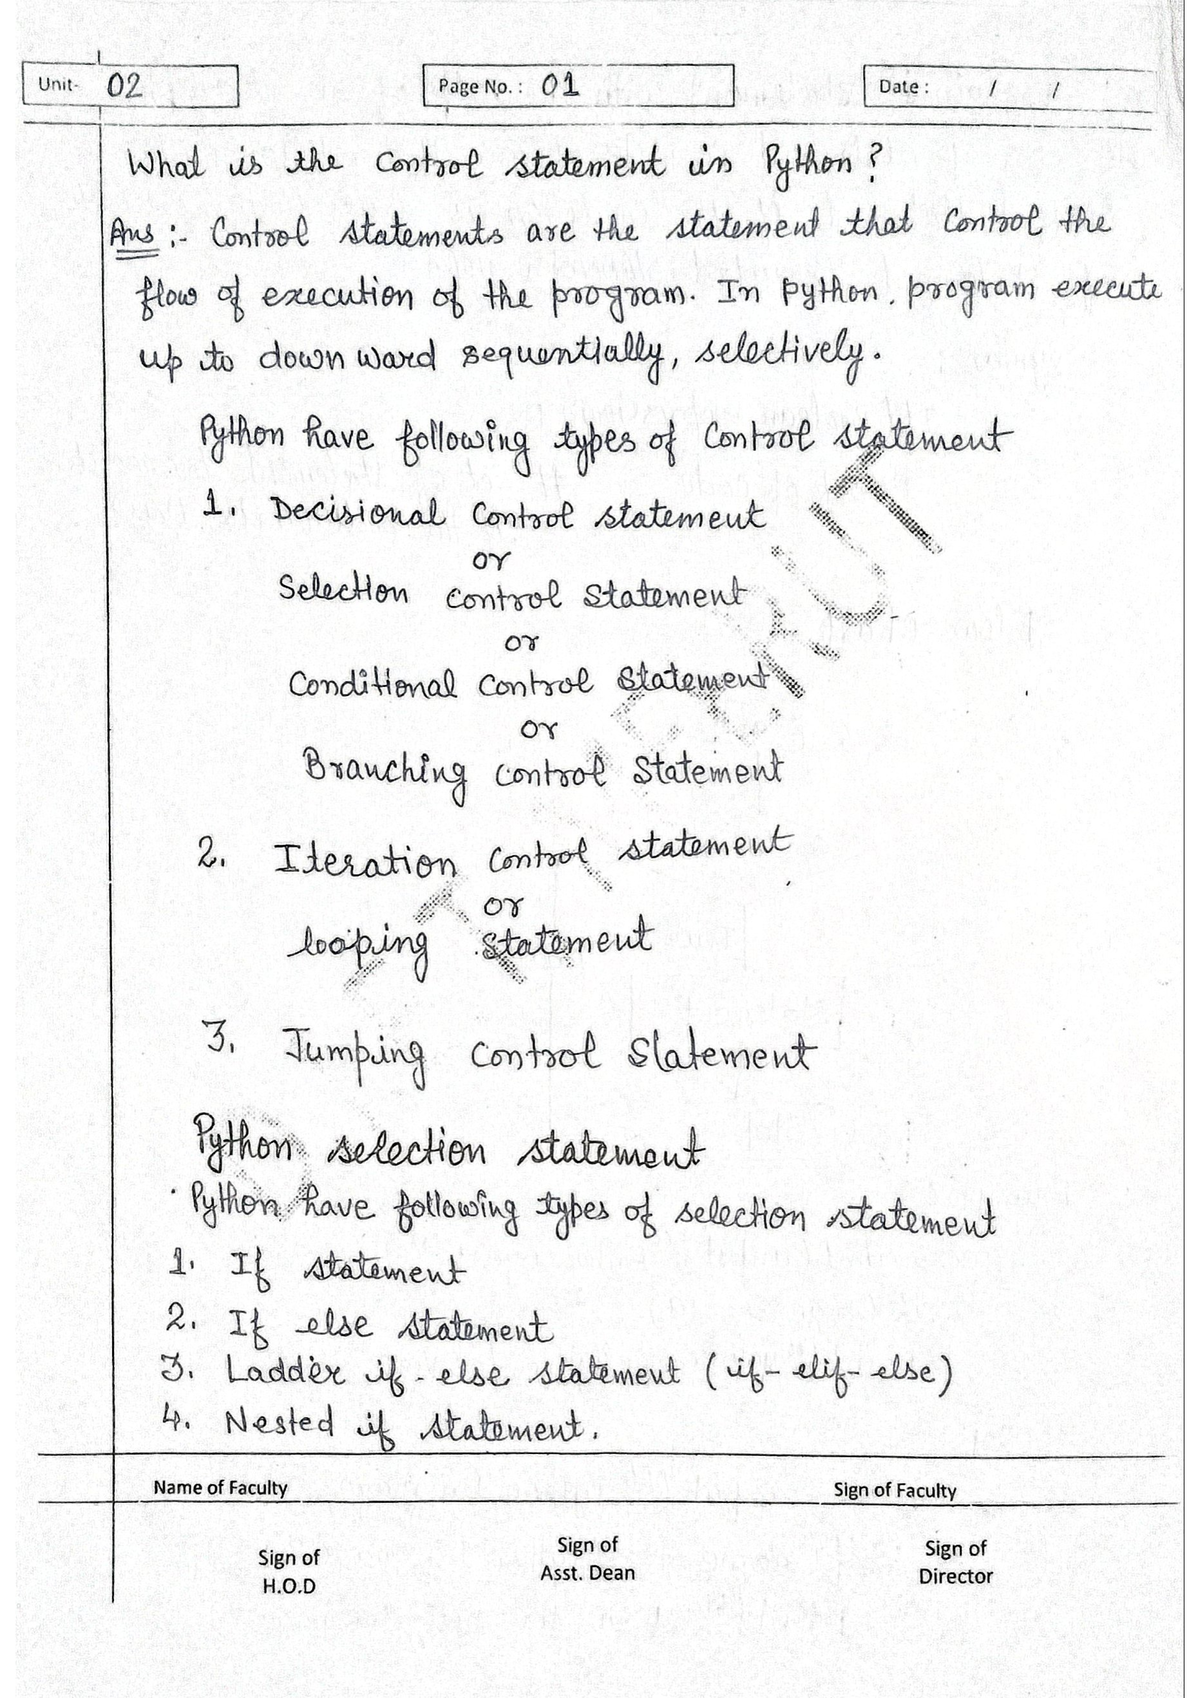 Unit- 02 Page No. : 01 Date : / /
What is the Control statement in Python ?
Ans :- Control statements are the statement that Control the
flow of execution of the program. In python, program execute
up to down ward sequentially, selectively.
Python have following types of Control statement
1. Decisional Control statement
or
Selection Control Statement
or
Conditional Control Statement
or
Branching Control Statement
2. Iteration Control statement
or
looping statement
3. Jumping Control Statement
Python selection statement
Python have following types of selection statement
1. If statement
2. If else statement
3. Ladder if - else statement ( if - elif - else )
4. Nested if statement.
Name of Faculty Sign of Faculty
Sign of H.O.D
Sign of Asst. Dean
Sign of Director